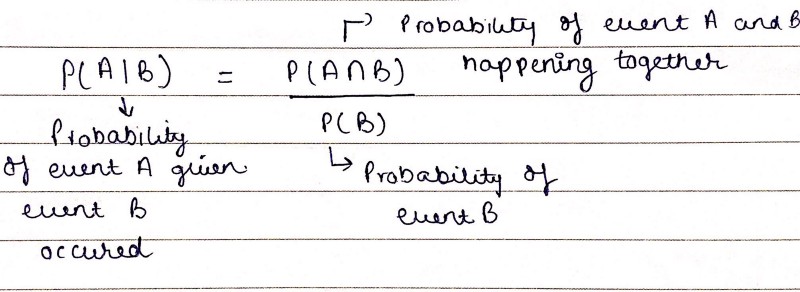 Probability of event A and B
happening together
P(A|B) = P(A∩B)
P(B)
Probability
of event A given
event B
occured
Probability of
event B